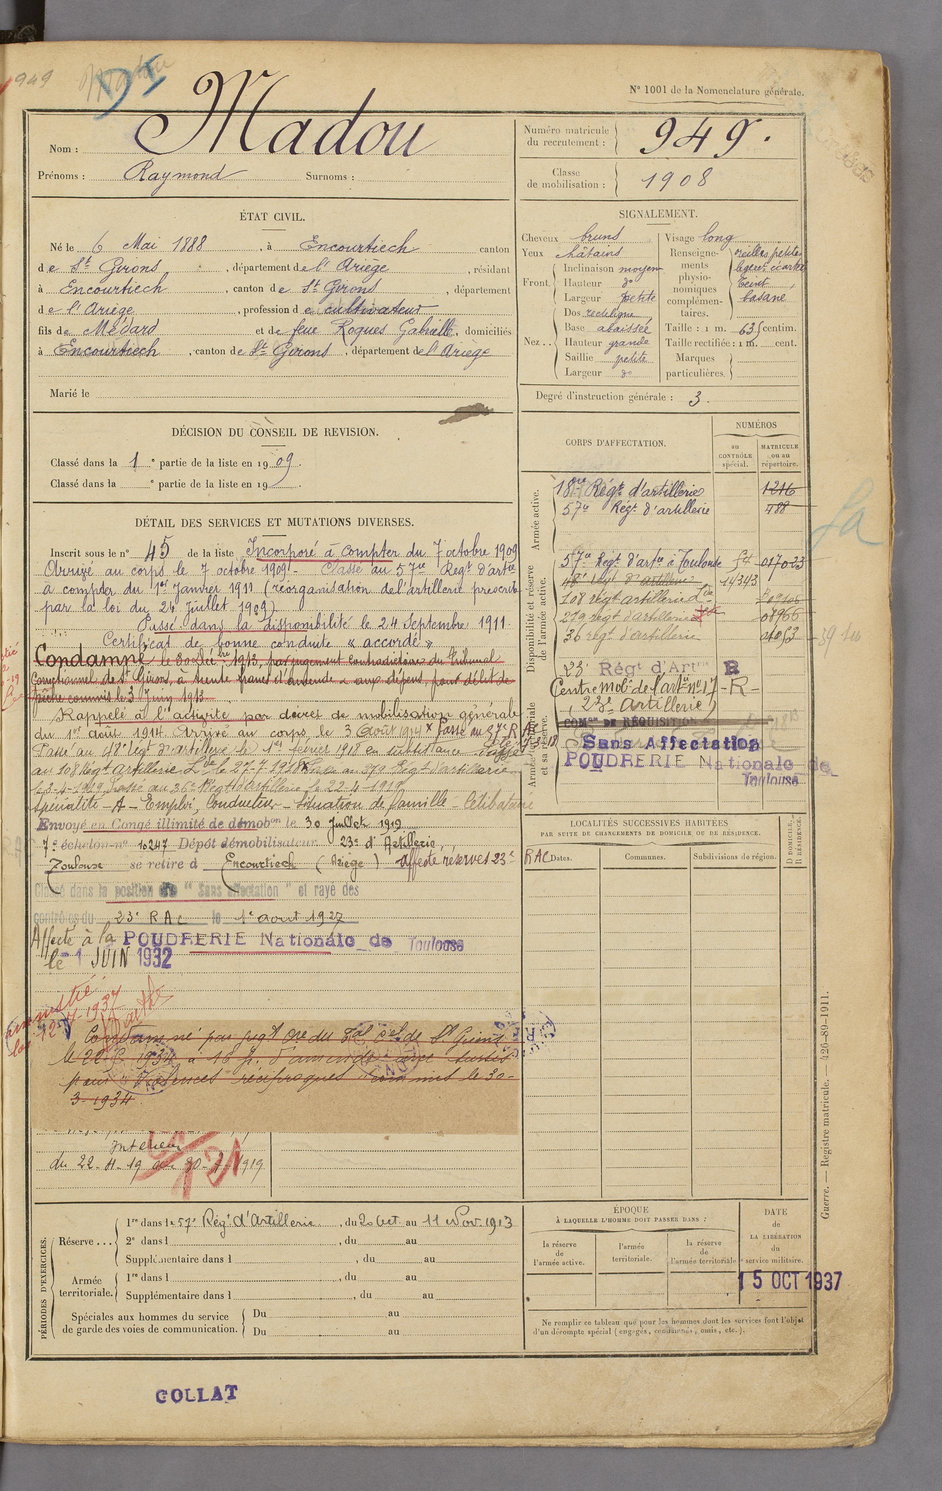 949
N° 1001 de la Nomenclature générale.
Nom : Madou
Prénoms : Raymond Surnoms :
Numéro matricule du recrutement : 949.
Classe de mobilisation : 1908
ÉTAT CIVIL.
Né le 6 Mai 1888, à Encourtiech canton
de St Girons, département de l'Ariège, résidant
à Encourtiech, canton de St Girons, département
de l'Ariège, profession de cultivateur
fils de Médard et de feue Roques Gabrielle, domiciliés
à Encourtiech, canton de St Girons, département de l'Ariège
Marié le
SIGNALEMENT.
Cheveux bruns
Yeux châtains
Front. Inclinaison moyen
Hauteur do
Largeur petite
Nez.. Dos rectiligne
Base abaissée
Hauteur grande
Saillie petite
Largeur do
Visage long
Renseignements physionomiques complémentaires. oreilles petites
légert écartées
Teint
basané
Taille : 1 m. 63 centim.
Taille rectifiée : 1 m. cent.
Marques particulières.
Degré d'instruction générale : 3.
DÉCISION DU CONSEIL DE REVISION.
Classé dans la 1e partie de la liste en 1909.
Classé dans la e partie de la liste en 19
CORPS D'AFFECTATION.
NUMÉROS
au CONTRÔLE spécial.
MATRICULE ou au répertoire.
Armée active.
18me Régt d'artillerie 1216
57e Régt d'artillerie 488
Disponibilité et réserve de l'armée active.
57e Régt d'artie à Toulouse 54 017023
48e régt d'artillerie 14343
108 régt artillerie Lde
279 régt d'artillerie 08966
36 régt d'artillerie
Armée territoriale et sa réserve.
23e Régt d'Artie R
Centre mob. de l'art. n° 17 - R -
23e artillerie
COMon DE RÉQUISITION
Sans Affectation
POUDRERIE Nationale de Toulouse
DÉTAIL DES SERVICES ET MUTATIONS DIVERSES.
Inscrit sous le n° 45 de la liste Incorporé à compter du 7 octobre 1909
Arrivé au corps le 7 octobre 1909. Classé au 57me Régt d'artie
à compter du 1er Janvier 1911 (réorganisation de l'artillerie prescrite
par la loi du 24 Juillet 1909)
Passé dans la disponibilité le 24 Septembre 1911.
Certificat de bonne conduite « accordé »
Condamné le 30 Déc bre 1913, par jugement contradictoire du tribunal
Correctionnel de St Girons, à trente francs d'amende & aux dépens, pour délit de
pêche commis le 3 Juin 1913.
Rappelé à l'activité par décret de mobilisation générale
du 1er août 1914. Arrivé au corps le 3 Août 1914 x Passé au 57e R
Passé au 48e régt d'artillerie le 1er février 1918 en subsistance. Passé
au 108 Régt Artillerie Lde le 27-7-1918 Passé au 279 Régt d'artillerie
le 3-4-1919 Passé au 36e Régt d'artillerie le 22-4-1919
Spécialité - A - Emploi, Conducteur - Situation de famille - Célibataire
Envoyé en Congé illimité de démobon le 30 Juillet 1919
7e échelon n° 10247 Dépôt démobilisateur 23e d'Artillerie,
Toulouse se retire à Encourtiech (Ariège) affecté réserves 23e RAC
Classé dans la position de "Sans affectation" et rayé des
contrôles du 23e RAC le 1er août 1927
Affecté à la POUDRERIE Nationale de Toulouse
le -1 JUIN 1932
amnistié
loi 12-7-1937
Condamné par jugt Cre du Tal Cel de St Girons
le 22-6-1934 à 16 f. d'amende avec sursis
pour violences réciproques commis le 30-
3-1934
Intérieur
du 22-4-19 au 30-7-1919
LOCALITÉS SUCCESSIVES HABITÉES
PAR SUITE DE CHANGEMENTS DE DOMICILE OU DE RÉSIDENCE.
Dates.
Communes.
Subdivisions de région.
D DOMICILE, R RÉSIDENCE.
PÉRIODES D'EXERCICES.
Réserve ... 1re dans le 57e Régt d'Artillerie, du 26 Oct au 11 Nov. 1913
2e dans l , du au
Supplémentaire dans l , du au
Armée territoriale. 1re dans l , du au
Supplémentaire dans l , du au
Spéciales aux hommes du service de garde des voies de communication. Du au
Du au
ÉPOQUE
À LAQUELLE L'HOMME DOIT PASSER DANS :
la réserve de l'armée active.
l'armée territoriale.
la réserve de l'armée territoriale
DATE de LA LIBÉRATION du service militaire.
15 OCT 1937
Ne remplir ce tableau que pour les hommes dont les services font l'objet
d'un décompte spécial (engagés, condamnés, omis, etc.).
Guerre. — Registre matricule. — 426-89-1911.
COLLAT